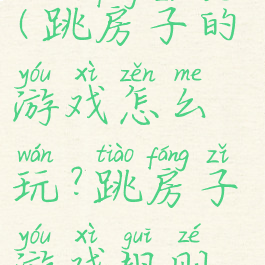 (跳房子的
yóu xì zěn me
游戏怎么
wán tiào fáng zǐ
玩?跳房子
yóu xì guī zé
游戏规则